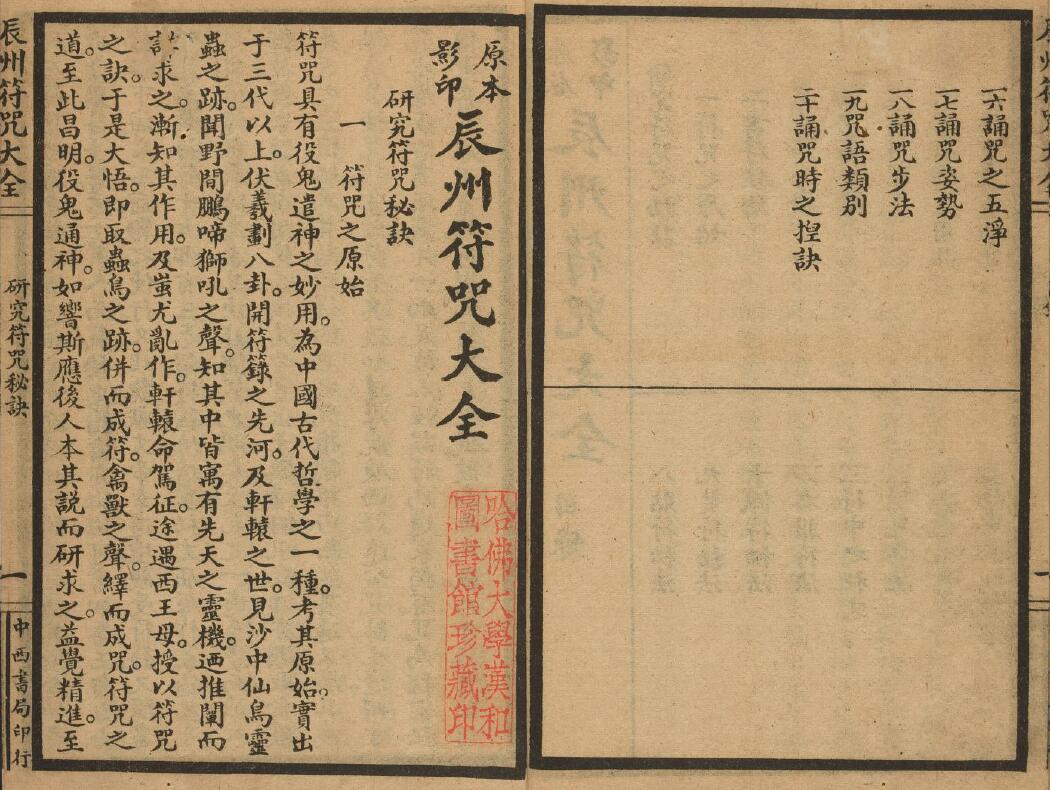 辰州符咒大全
一六誦咒之五淨
一七誦咒姿勢
一八誦咒步法
一九咒語類別
二十誦咒時之揑訣
原本
影印
辰州符咒大全
哈佛大學漢和
圖書館珍藏印
研究符咒秘訣
一 符咒之原始
符咒具有役鬼遣神之妙用。為中國古代哲學之一種。考其原始。實出
于三代以上。伏羲劃八卦。開符籙之先河。及軒轅之世。見沙中仙鳥靈
蟲之跡。聞野間鵬啼獅吼之聲。知其中皆寓有先天之靈機。迺推闡而
討求之。漸知其作用。及蚩尤亂作。軒轅命駕征。途遇西王母。授以符咒
之訣。于是大悟。即取蟲鳥之跡。併而成符。禽獸之聲。繹而成咒。符咒之
道至此昌明。役鬼通神。如響斯應後人本其說而研求之。益覺精進。至
辰州符咒大全
研究符咒秘訣
一
中西書局印行